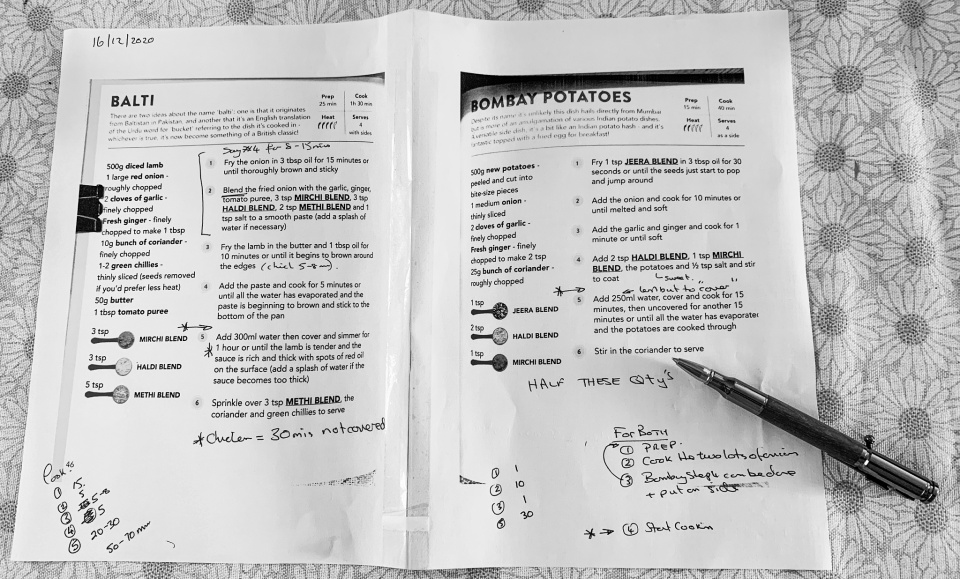 16/12/2020
BALTI
There are two ideas about the name 'balti': one is that it originates
from Baltistan in Pakistan, and another that it's an English translation
of the Urdu word for 'bucket' referring to the dish it's cooked in -
whichever is true, it's now become something of a British classic!
Prep
25 min
Cook
1h 30 min
Heat
Serves
4
with sides
500g diced lamb
1 large red onion -
roughly chopped
2 cloves of garlic -
finely chopped
Fresh ginger - finely
chopped to make 1 tbsp
10g bunch of coriander -
finely chopped
1-2 green chillies -
thinly sliced (seeds removed
if you'd prefer less heat)
50g butter
1 tbsp tomato puree
3 tsp
MIRCHI BLEND
3 tsp
HALDI BLEND
5 tsp
METHI BLEND
for 8-15 mins
1 Fry the onion in 3 tbsp oil for 15 minutes or
until thoroughly brown and sticky
2 Blend the fried onion with the garlic, ginger,
tomato puree, 3 tsp MIRCHI BLEND, 3 tsp
HALDI BLEND, 2 tsp METHI BLEND and 1
tsp salt to a smooth paste (add a splash of
water if necessary)
3 Fry the lamb in the butter and 1 tbsp oil for
10 minutes or until it begins to brown around
the edges (chick 5-8m).
4 Add the paste and cook for 5 minutes or
until all the water has evaporated and the
paste is beginning to brown and stick to the
bottom of the pan
* →
5 Add 300ml water then cover and simmer for
* 1 hour or until the lamb is tender and the
sauce is rich and thick with spots of red oil
on the surface (add a splash of water if the
sauce becomes too thick)
6 Sprinkle over 3 tsp METHI BLEND, the
coriander and green chillies to serve
* Chicken = 30 mins not covered
Cook
① 15
② 5
③ 5-8
④ 5
⑤ 20-30
50-70 min
BOMBAY POTATOES
Despite its name it's unlikely this dish hails directly from Mumbai
but is more of an amalgamation of various Indian potato dishes.
A versatile side dish, it's a bit like an Indian potato hash - and it's
fantastic topped with a fried egg for breakfast!
Prep
15 min
Cook
40 min
Heat
Serves
4
as a side
500g new potatoes -
peeled and cut into
bite-size pieces
1 medium onion -
thinly sliced
2 cloves of garlic -
finely chopped
Fresh ginger - finely
chopped to make 2 tsp
25g bunch of coriander -
roughly chopped
1 tsp
JEERA BLEND
2 tsp
HALDI BLEND
1 tsp
MIRCHI BLEND
1 Fry 1 tsp JEERA BLEND in 3 tbsp oil for 30
seconds or until the seeds just start to pop
and jump around
2 Add the onion and cook for 10 minutes or
until melted and soft
3 Add the garlic and ginger and cook for 1
minute or until soft
4 Add 2 tsp HALDI BLEND, 1 tsp MIRCHI
BLEND, the potatoes and ½ tsp salt and stir
to coat
sweet.
* →
← less but to cover
5 Add 250ml water, cover and cook for 15
minutes, then uncovered for another 15
minutes or until all the water has evaporated
and the potatoes are cooked through
6 Stir in the coriander to serve
HALF THESE QTY'S
FOR BOTH
① PREP.
② Cook the two lots of onion
③ Bombay Step 4 can be done
+ put on side
* → ④ Start Cookin
① 1
② 10
③ 1
⑤ 30